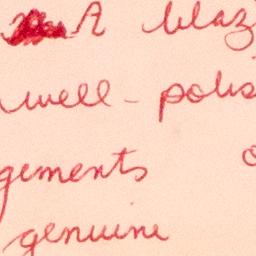 A blaz
well-polis
gements o
genuine